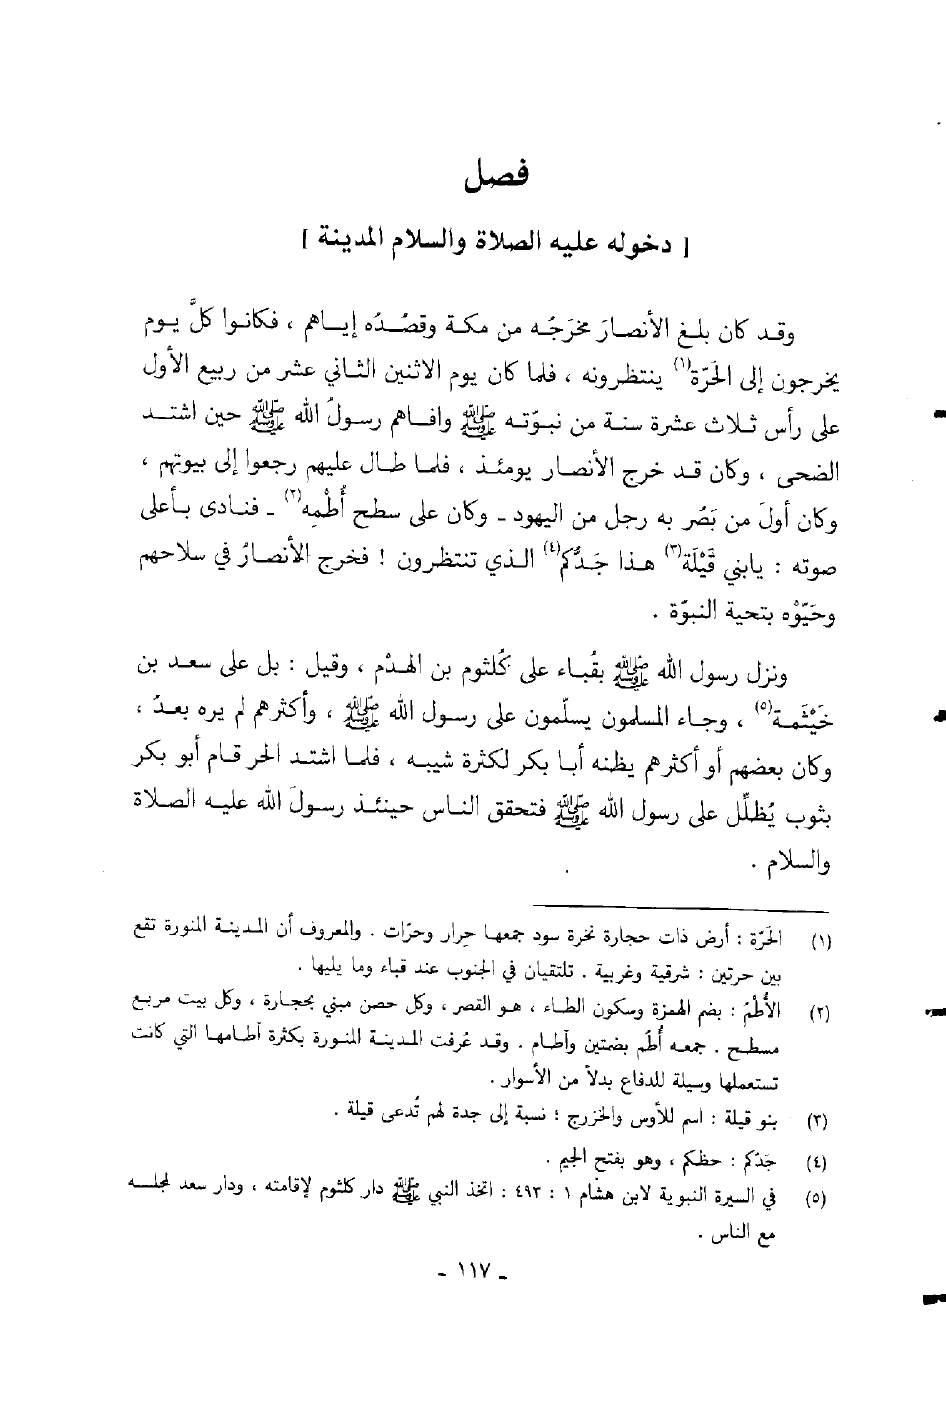 فصل
[ دخوله عليه الصلاة والسلام المدينة ]
وقد كان بلغ الأنصارَ مخرَجُه من مكة وقصْدُه إياهم ، فكانوا كلَّ يوم
يخرجون إلى الحَرّة(١) ينتظرونه ، فلما كان يوم الاثنين الثاني عشر من ربيع الأول
على رأس ثلاث عشرة سنة من نبوّته ﷺ وافاهم رسولُ الله ﷺ حين اشتد
الضحى ، وكان قد خرج الأنصار يومئذ ، فلما طال عليهم رجعوا إلى بيوتهم ،
وكان أولَ من بَصُر به رجل من اليهود - وكان على سطح أُطْمِه(٢) - فنادى بأعلى
صوته : يابني قَيْلَة(٣) هذا جَدُّكم(٤) الذي تنتظرون ! فخرج الأنصارُ في سلاحهم
وحَيَّوْه بتحية النبوّة .
ونزل رسول الله ﷺ بقُباء على كُلثوم بن الهدْم ، وقيل : بل على سعد بن
خَيْثَمة(٥) ، وجاء المسلمون يسلّمون على رسول الله ﷺ ، وأكثرهم لم يره بعدُ ،
وكان بعضهم أو أكثرهم يظنه أبا بكر لكثرة شيبه ، فلما اشتد الحر قام أبو بكر
بثوب يُظلِّل على رسول الله ﷺ فتحقق الناس حينئذ رسولَ الله عليه الصلاة
والسلام .
(١) الحَرّة : أرض ذات حجارة نخرة سود جمعها حِرار وحرّات . والمعروف أن المدينة المنورة تقع
بين حرتين : شرقية وغربية . تلتقيان في الجنوب عند قباء وما يليها .
(٢) الأُطْمُ : بضم الهمزة وسكون الطاء ، هو القصر ، وكل حصن مبني بحجارة ، وكل بيت مربع
مسطح . جمعه أُطُم بضمتين وآطام . وقد عُرفت المدينة المنورة بكثرة آطامها التي كانت
تستعملها وسيلة للدفاع بدلاً من الأسوار .
(٣) بنو قيلة : اسم للأوس والخزرج ؛ نسبة إلى جدة لهم تُدعى قيلة .
(٤) جَدّكم : حظكم ، وهو بفتح الجيم .
(٥) في السيرة النبوية لابن هشام ١ : ٤٩٣ : اتخذ النبي ﷺ دار كلثوم لإقامته ، ودار سعد لمجلسه
مع الناس .
- ١١٧ -